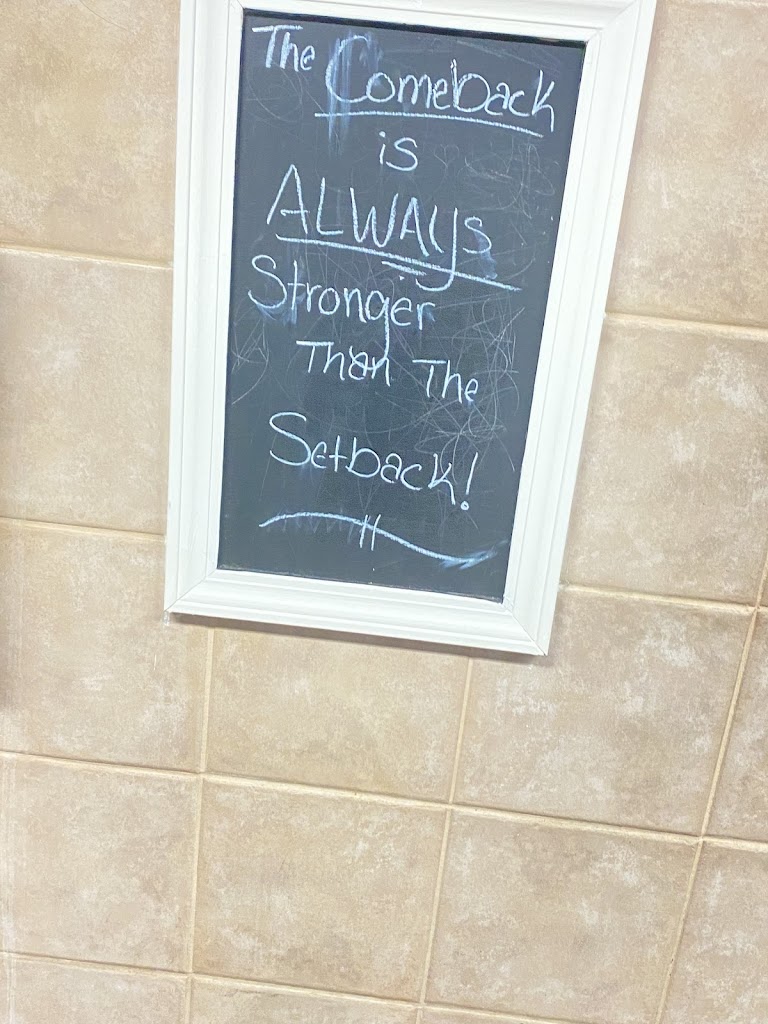 The Comeback
is
ALWAYS
Stronger
Than The
Setback!